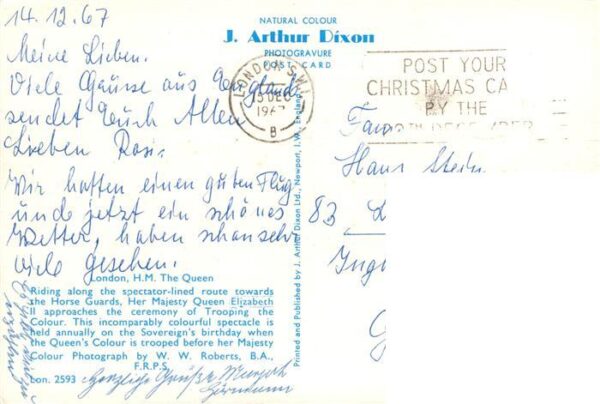 14.12.67
NATURAL COLOUR
J. Arthur Dixon
PHOTOGRAVURE
POST CARD
LONDON S.W.1
15 DEC
196
B
POST YOUR
CHRISTMAS CA
BY THE
Meine Lieben.
Viele Grüsse aus England
sendet Euch Allen
Lieben
Wir hatten einen guten Flug
und jetzt ein schönes
Wetter, haben schon sehr
viele gesehen.
Fam.
Hans Stein
83 L
Ing
Printed and Published by J. Arthur Dixon Ltd., Newport, I.W., England.
London, H.M. The Queen
Riding along the spectator-lined route towards
the Horse Guards, Her Majesty Queen Elizabeth
II approaches the ceremony of Trooping the
Colour. This incomparably colourful spectacle is
held annually on the Sovereign's birthday when
the Queen's Colour is trooped before her Majesty
Colour Photograph by W. W. Roberts, B.A.,
F.R.P.S.
Lon. 2593
Grüße